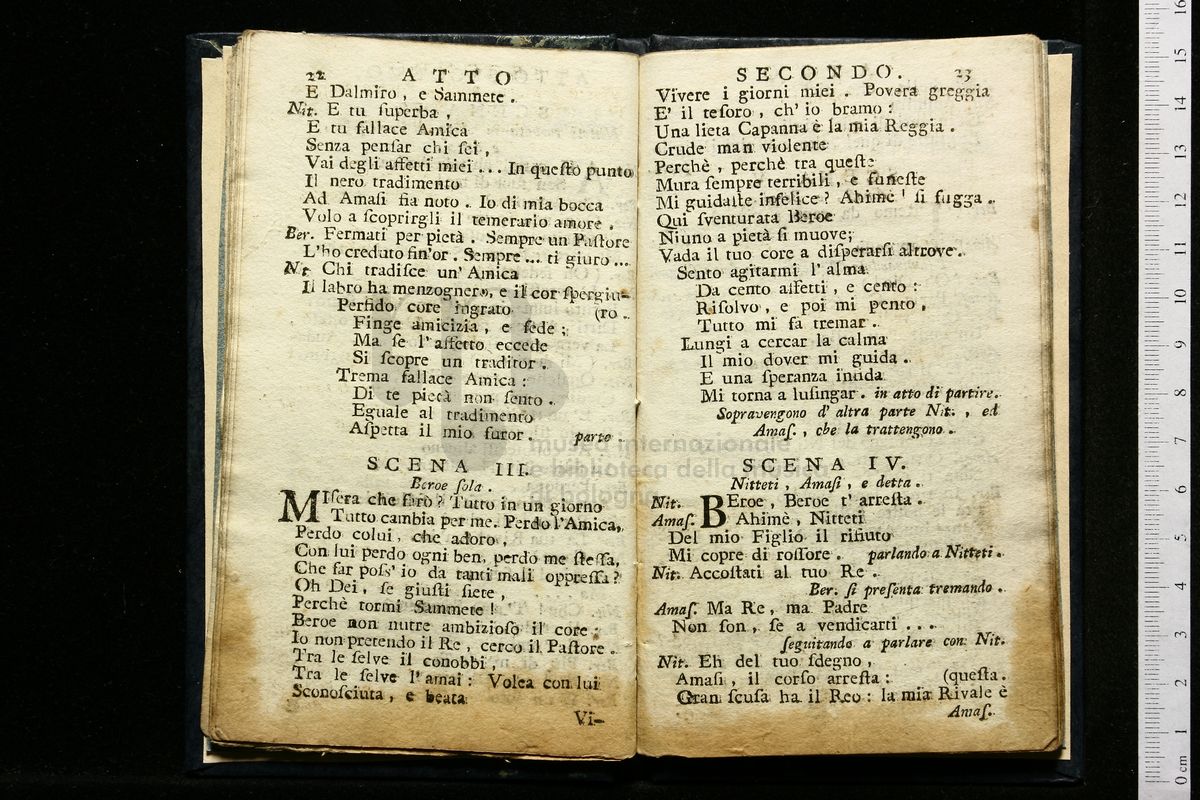 22 ATTO
E Dalmiro, e Sammete.
Nit. E tu ſuperba,
E tu fallace Amica
Senza penſar chi ſei,
Vai degli affetti miei ... In queſto punto
Il nero tradimento
Ad Amaſi fia noto. Io di mia bocca
Volo a ſcoprirgli il temerario amore.
Ber. Fermati per pietà. Sempre un Paſtore
L'ho creduto fin'or. Sempre ... ti giuro ...
Nt Chi tradiſce un' Amica
Il labro ha menzognero, e il cor ſpergiu-
Perfido core ingrato (ro.
Finge amicizia, e fede;
Ma ſe l'affetto eccede
Si ſcopre un traditor.
Trema fallace Amica:
Di te pietà non ſento.
Eguale al tradimento
Aſpetta il mio furor. parte.
SCENA III.
Beroe ſola.
MIſera che farò? Tutto in un giorno
Tutto cambia per me. Perdo l'Amica,
Perdo colui, che adoro,
Con lui perdo ogni ben, perdo me ſteſſa,
Che far poſs' io da tanti mali oppreſſa?
Oh Dei, ſe giuſti ſiete,
Perchè tormi Sammete!
Beroe non nutre ambizioſo il core:
Io non pretendo il Re, cerco il Paſtore.
Tra le ſelve il conobbi,
Tra le ſelve l'amai: Volea con lui
Sconoſciuta, e beata
Vi-
SECONDO. 23
Vivere i giorni miei. Povera greggia
E' il teſoro, ch' io bramo:
Una lieta Capanna è la mia Reggia.
Crude man violente
Perchè, perchè tra queſte
Mura ſempre terribili, e funeſte
Mi guidaſte infelice? Ahimè! ſi fugga.
Qui ſventurata Beroe
Niuno a pietà ſi muove;
Vada il tuo core a diſperarſi altrove.
Sento agitarmi l'alma
Da cento affetti, e cento:
Riſolvo, e poi mi pento,
Tutto mi fa tremar.
Lungi a cercar la calma
Il mio dover mi guida.
E una ſperanza infida
Mi torna a luſingar. in atto di partire.
Sopravengono d' altra parte Nit., ed
Amaſ., che la trattengono.
SCENA IV.
Nitteti, Amaſi, e detta.
Nit. BEroe, Beroe t' arreſta.
Amaſ. Ahimè, Nitteti
Del mio Figlio il rifiuto
Mi copre di roſſore. parlando a Nitteti.
Nit. Accoſtati al tuo Re.
Ber. ſi preſenta tremando.
Amaſ. Ma Re, ma Padre
Non ſon, ſe a vendicarti ...
ſeguitando a parlare con Nit.
Nit. Eh del tuo ſdegno,
Amaſi, il corſo arreſta: (queſta.
Gran ſcuſa ha il Reo: la mia Rivale è
Amaſ.
museo internazionale
e biblioteca della musica
di bologna
0 cm 1 2 3 4 5 6 7 8 9 10 11 12 13 14 15 16